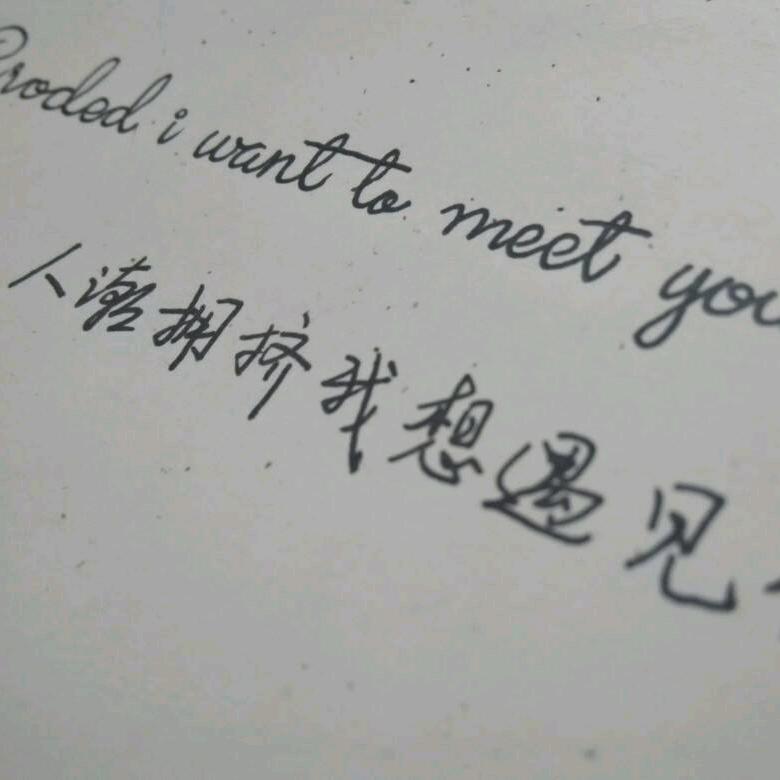 roded i want to meet you
人潮拥挤我想遇见